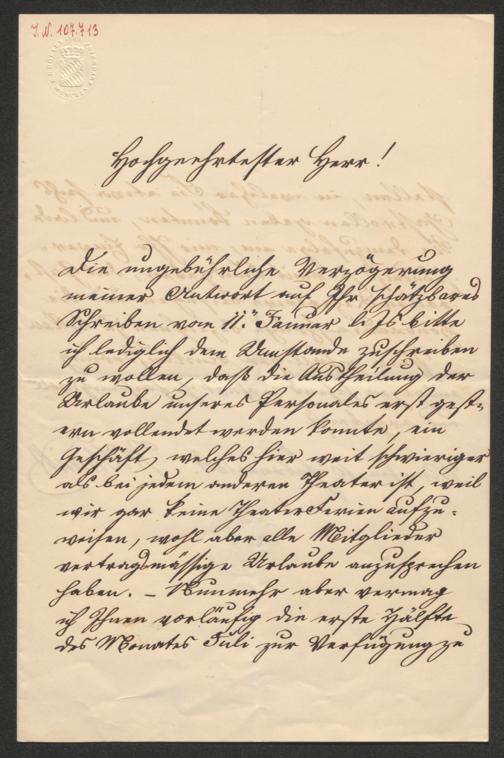 I. N. 107.713
Hochgeehrtester Herr!
Die ungebührliche Verzögerung
meiner Antwort auf Ihr schätzbares
Schreiben vom 11. Jänner bitte
ich lediglich dem Umstande zuschreiben
zu wollen, daß die Austheilung der
Urlaube unseres Personales erst gest-
ern vollendet werden konnte, ein
Geschäft, welches hier weit schwieriger
als bei jedem anderen Theater ist, weil
wir gar keine Theater Ferien aufzu-
weisen, wohl aber alle Mitglieder
vertragsmässige Urlaube anzusprechen
haben. – Nunmehr aber vermag
ich Ihnen vorläufig die erste Hälfte
des Monates Juli zur Verfügung zu